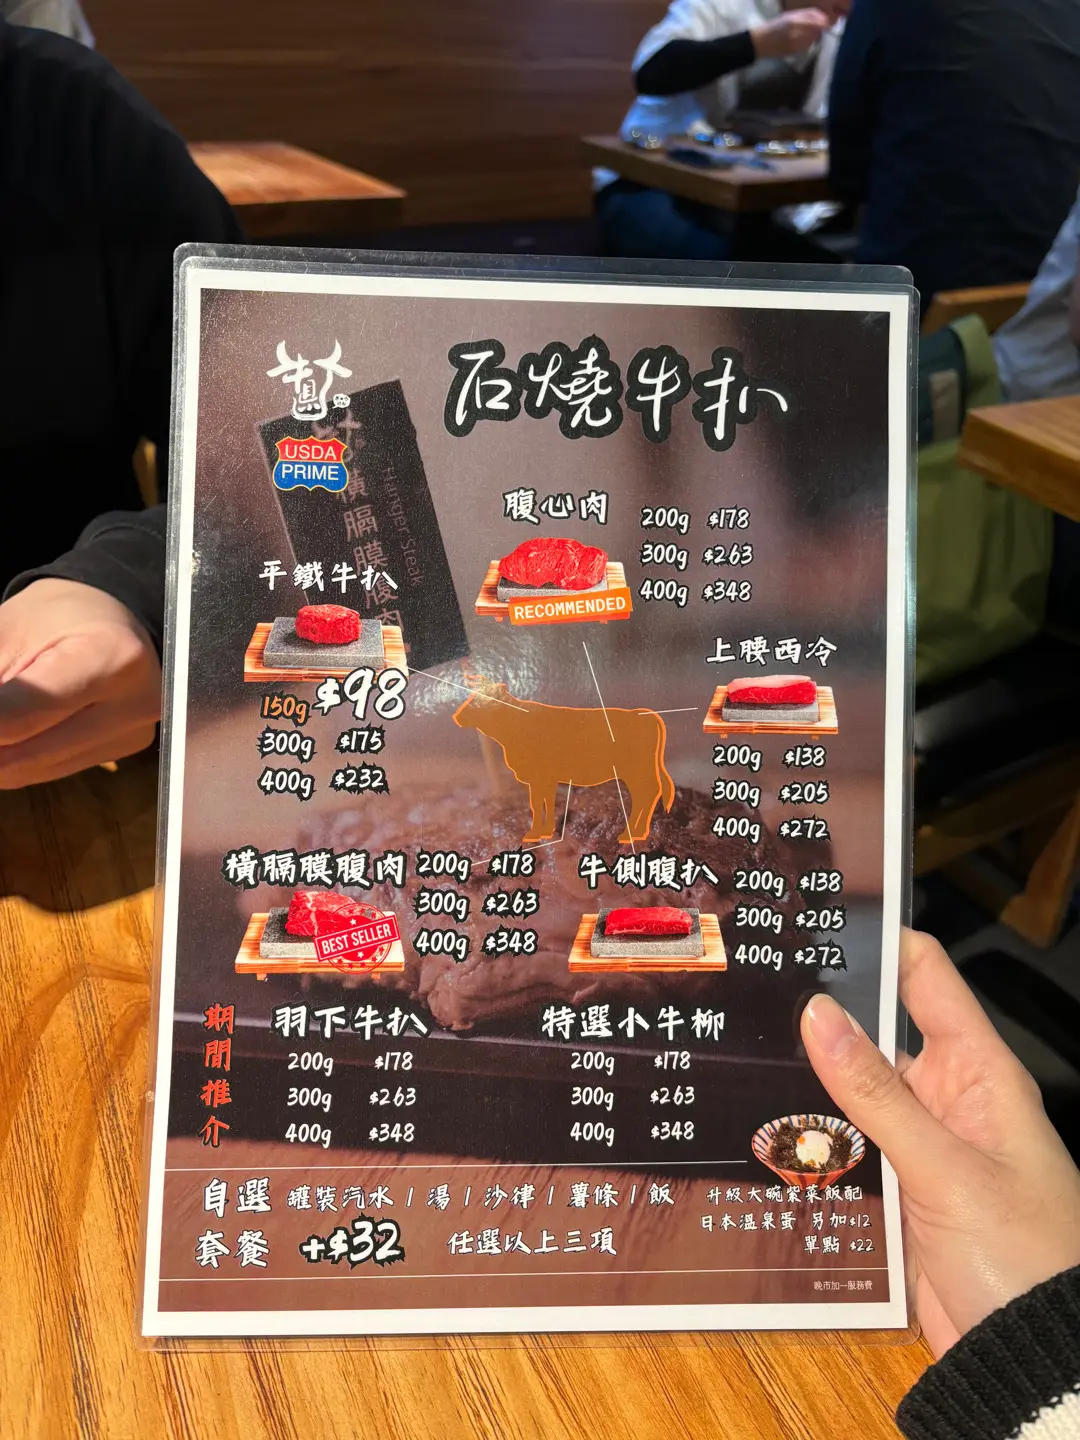 牛気
USDA
PRIME
石燒牛扒
橫膈膜腹肉
Hunger Steak
腹心肉
200g $178
300g $263
400g $348
RECOMMENDED
平鐵牛扒
150g $98
300g $175
400g $232
上腰西冷
200g $138
300g $205
400g $272
橫膈膜腹肉
200g $178
300g $263
400g $348
BEST SELLER
牛側腹扒
200g $138
300g $205
400g $272
期間推介
羽下牛扒
200g $178
300g $263
400g $348
特選小牛柳
200g $178
300g $263
400g $348
自選套餐 +$32
罐裝汽水 / 湯 / 沙律 / 薯條 / 飯
任選以上三項
升級大碗紫菜飯配
日本溫泉蛋 另加$12
單點 $22
晚市加一服務費